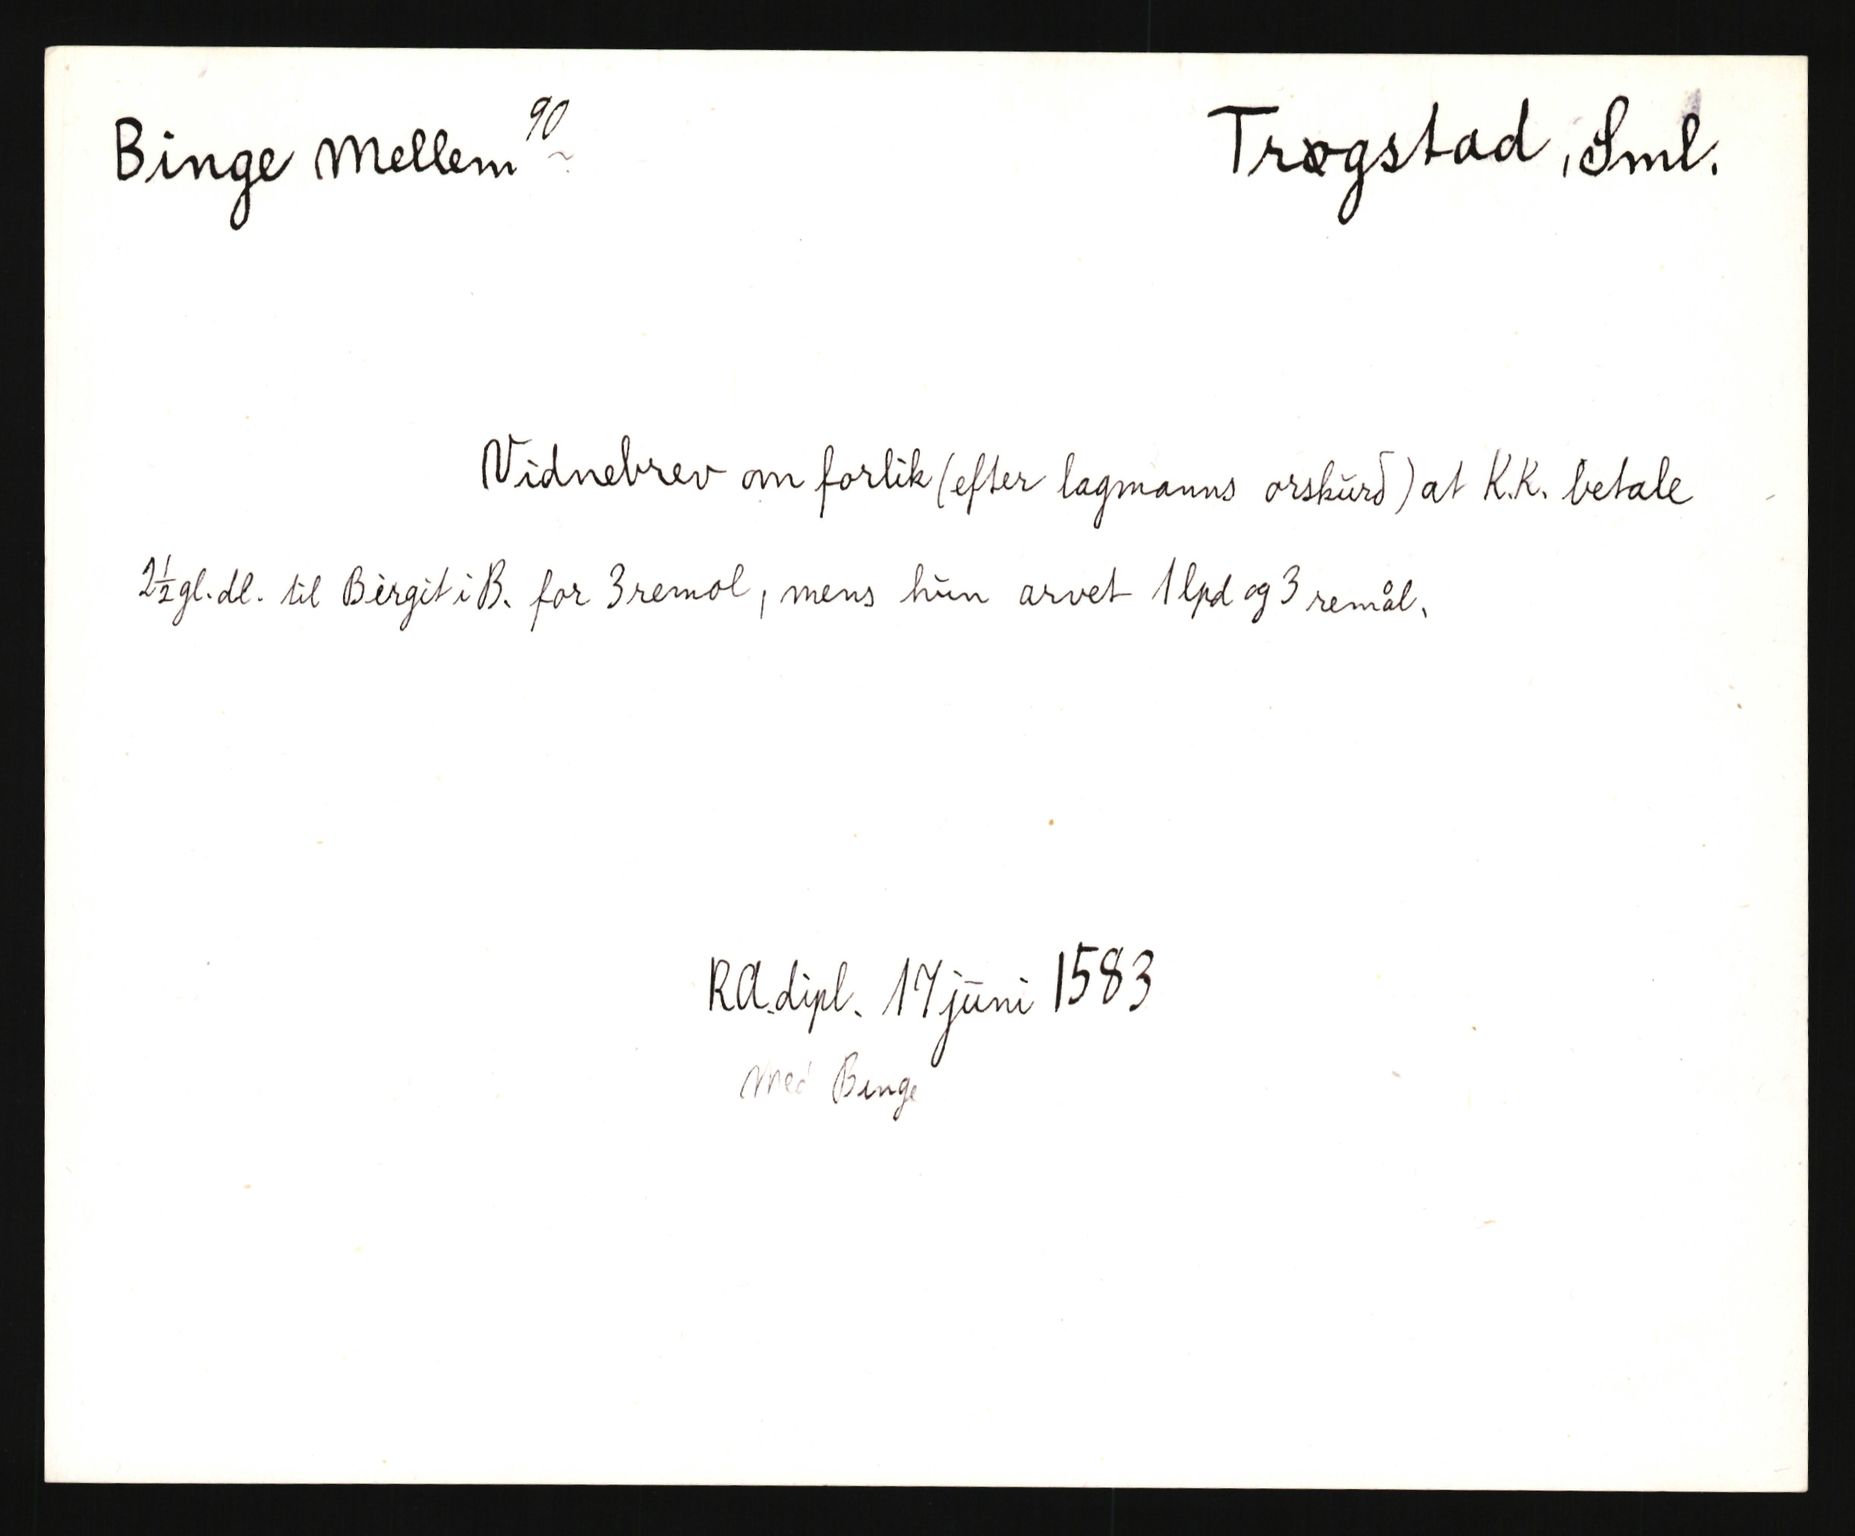 Binge Mellem 90 Trøgstad, Sml.
Vidnebrev om forlik (efter lagmanns orskurd) at K.K. betale
2½ gl. dl. til Birgit i B. for 3 remol, mens hun arvet 1 lpd og 3 remål.
RA. dipl. 17 juni 1583
Med Binge